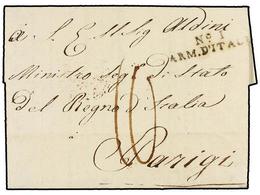 a S. E. Il Sig Aldini
Nº 1
ARM. D'ITAL
Ministro Seg. di Stato
Del Regno d'Italia
10
Parigi